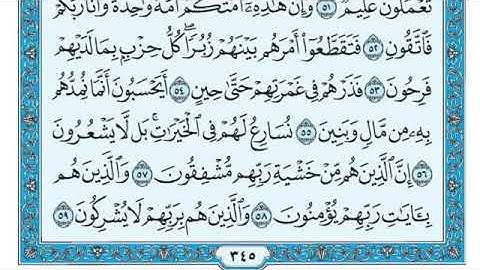 تَعْمَلُونَ عَلِيمٌ ٥١ وَإِنَّ هَٰذِهِۦٓ أُمَّتُكُمْ أُمَّةً وَٰحِدَةً وَأَنَا۠ رَبُّكُمْ
فَٱتَّقُونِ ٥٢ فَتَقَطَّعُوٓا۟ أَمْرَهُم بَيْنَهُمْ زُبُرًا ۖ كُلُّ حِزْبٍۭ بِمَا لَدَيْهِمْ
فَرِحُونَ ٥٣ فَذَرْهُمْ فِى غَمْرَتِهِمْ حَتَّىٰ حِينٍ ٥٤ أَيَحْسَبُونَ أَنَّمَا نُمِدُّهُم
بِهِۦ مِن مَّالٍ وَبَنِينَ ٥٥ نُسَارِعُ لَهُمْ فِى ٱلْخَيْرَٰتِ ۚ بَل لَّا يَشْعُرُونَ
٥٦ إِنَّ ٱلَّذِينَ هُم مِّنْ خَشْيَةِ رَبِّهِم مُّشْفِقُونَ ٥٧ وَٱلَّذِينَ هُم
بِـَٔايَٰتِ رَبِّهِمْ يُؤْمِنُونَ ٥٨ وَٱلَّذِينَ هُم بِرَبِّهِمْ لَا يُشْرِكُونَ ٥٩
٣٤٥